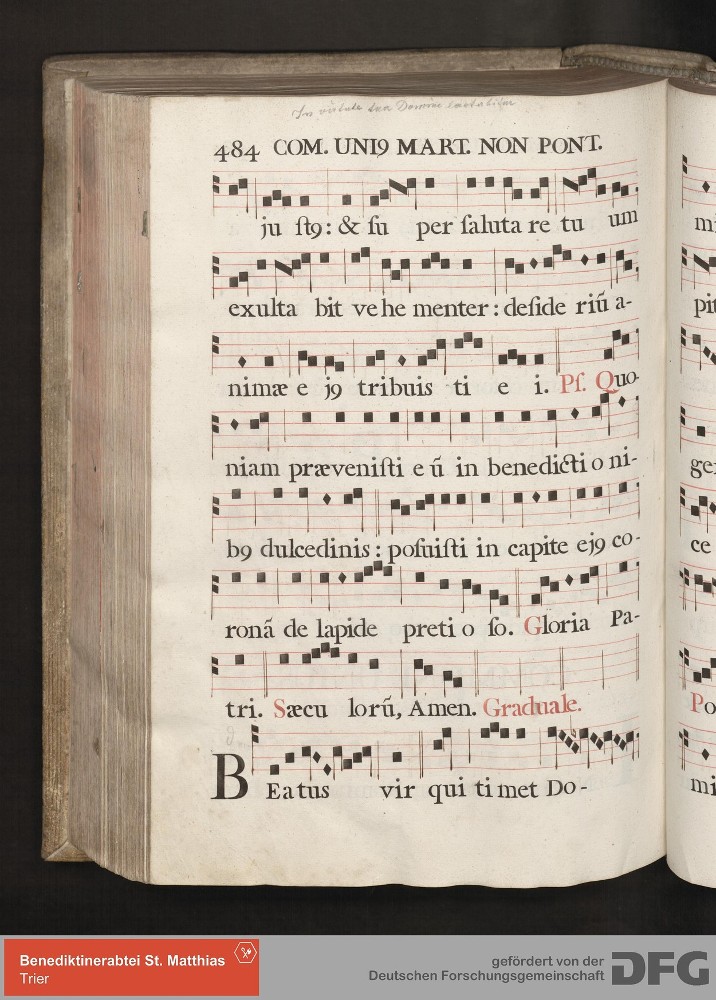 In virtute tua Domine laetabitur
484 COM. UNI9 MART. NON PONT.
ju ſt9: & ſu per ſaluta re tu um
exulta bit ve he menter: deſide riũ a-
nimæ e j9 tribuis ti e i. Pſ. Quo-
niam præveniſti e ũ in benedicti o ni-
b9 dulcedinis: poſuiſti in capite ej9 co-
ronã de lapide preti o ſo. Gloria Pa-
tri. Sæcu lorũ, Amen. Graduale.
BEatus vir qui ti met Do-
mi
pit
ge
ce
Po
mi
Benediktinerabtei St. Matthias
Trier
gefördert von der
Deutschen Forschungsgemeinschaft
DFG